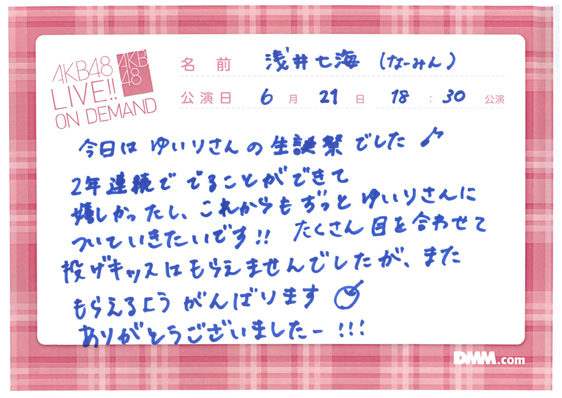 AKB48
LIVE!!
ON DEMAND
AKB
48
名前 浅井七海 (なーみん)
公演日 6月 21日 18:30 公演
今日は ゆいりさんの 生誕祭 でした♪
2年連続で でることができて
嬉しかったし、これからも ずっと ゆいりさんに
ついていきたいです!! たくさん 目を合わせて
投げキッスはもらえませんでしたが、また
もらえるよう がんばります
ありがとうございましたー!!!
DMM.com